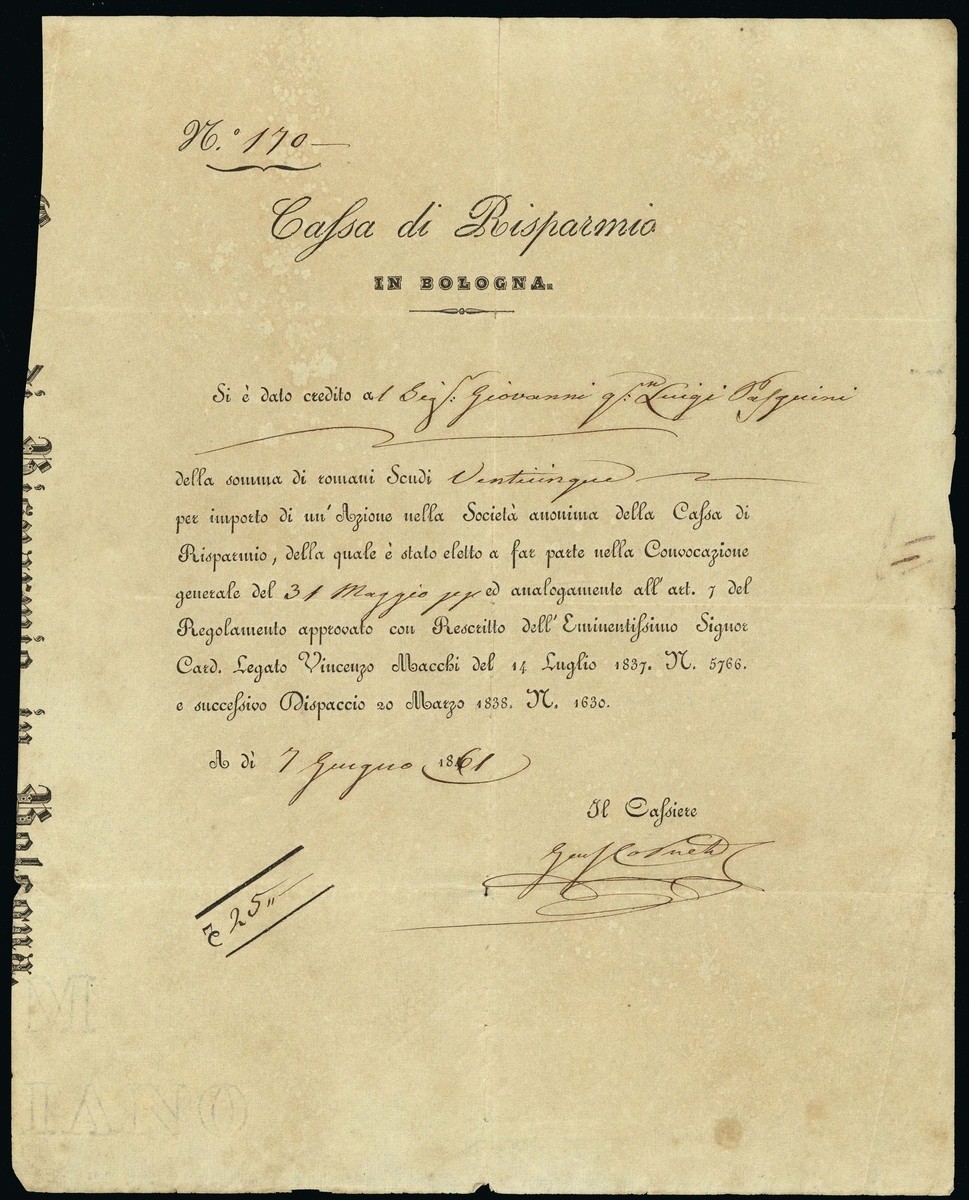 N.° 170
Cassa di Risparmio
IN BOLOGNA.
Si è dato credito al Sig.r Giovanni q.m Luigi Pasquini
della somma di romani Scudi Venticinque
per importo di un' Azione nella Società anonima della Cassa di
Risparmio, della quale è stato eletto a far parte nella Convocazione
generale del 31 Maggio pp ed analogamente all' art. 7 del
Regolamento approvato con Rescritto dell' Eminentissimo Signor
Card. Legato Vincenzo Macchi del 14 Luglio 1837. N. 5766.
e successivo Dispaccio 20 Marzo 1838. N. 1630.
A dì 7 Giugno 1861
Il Cassiere
25
di Risparmio in Bologna.
M
IANO